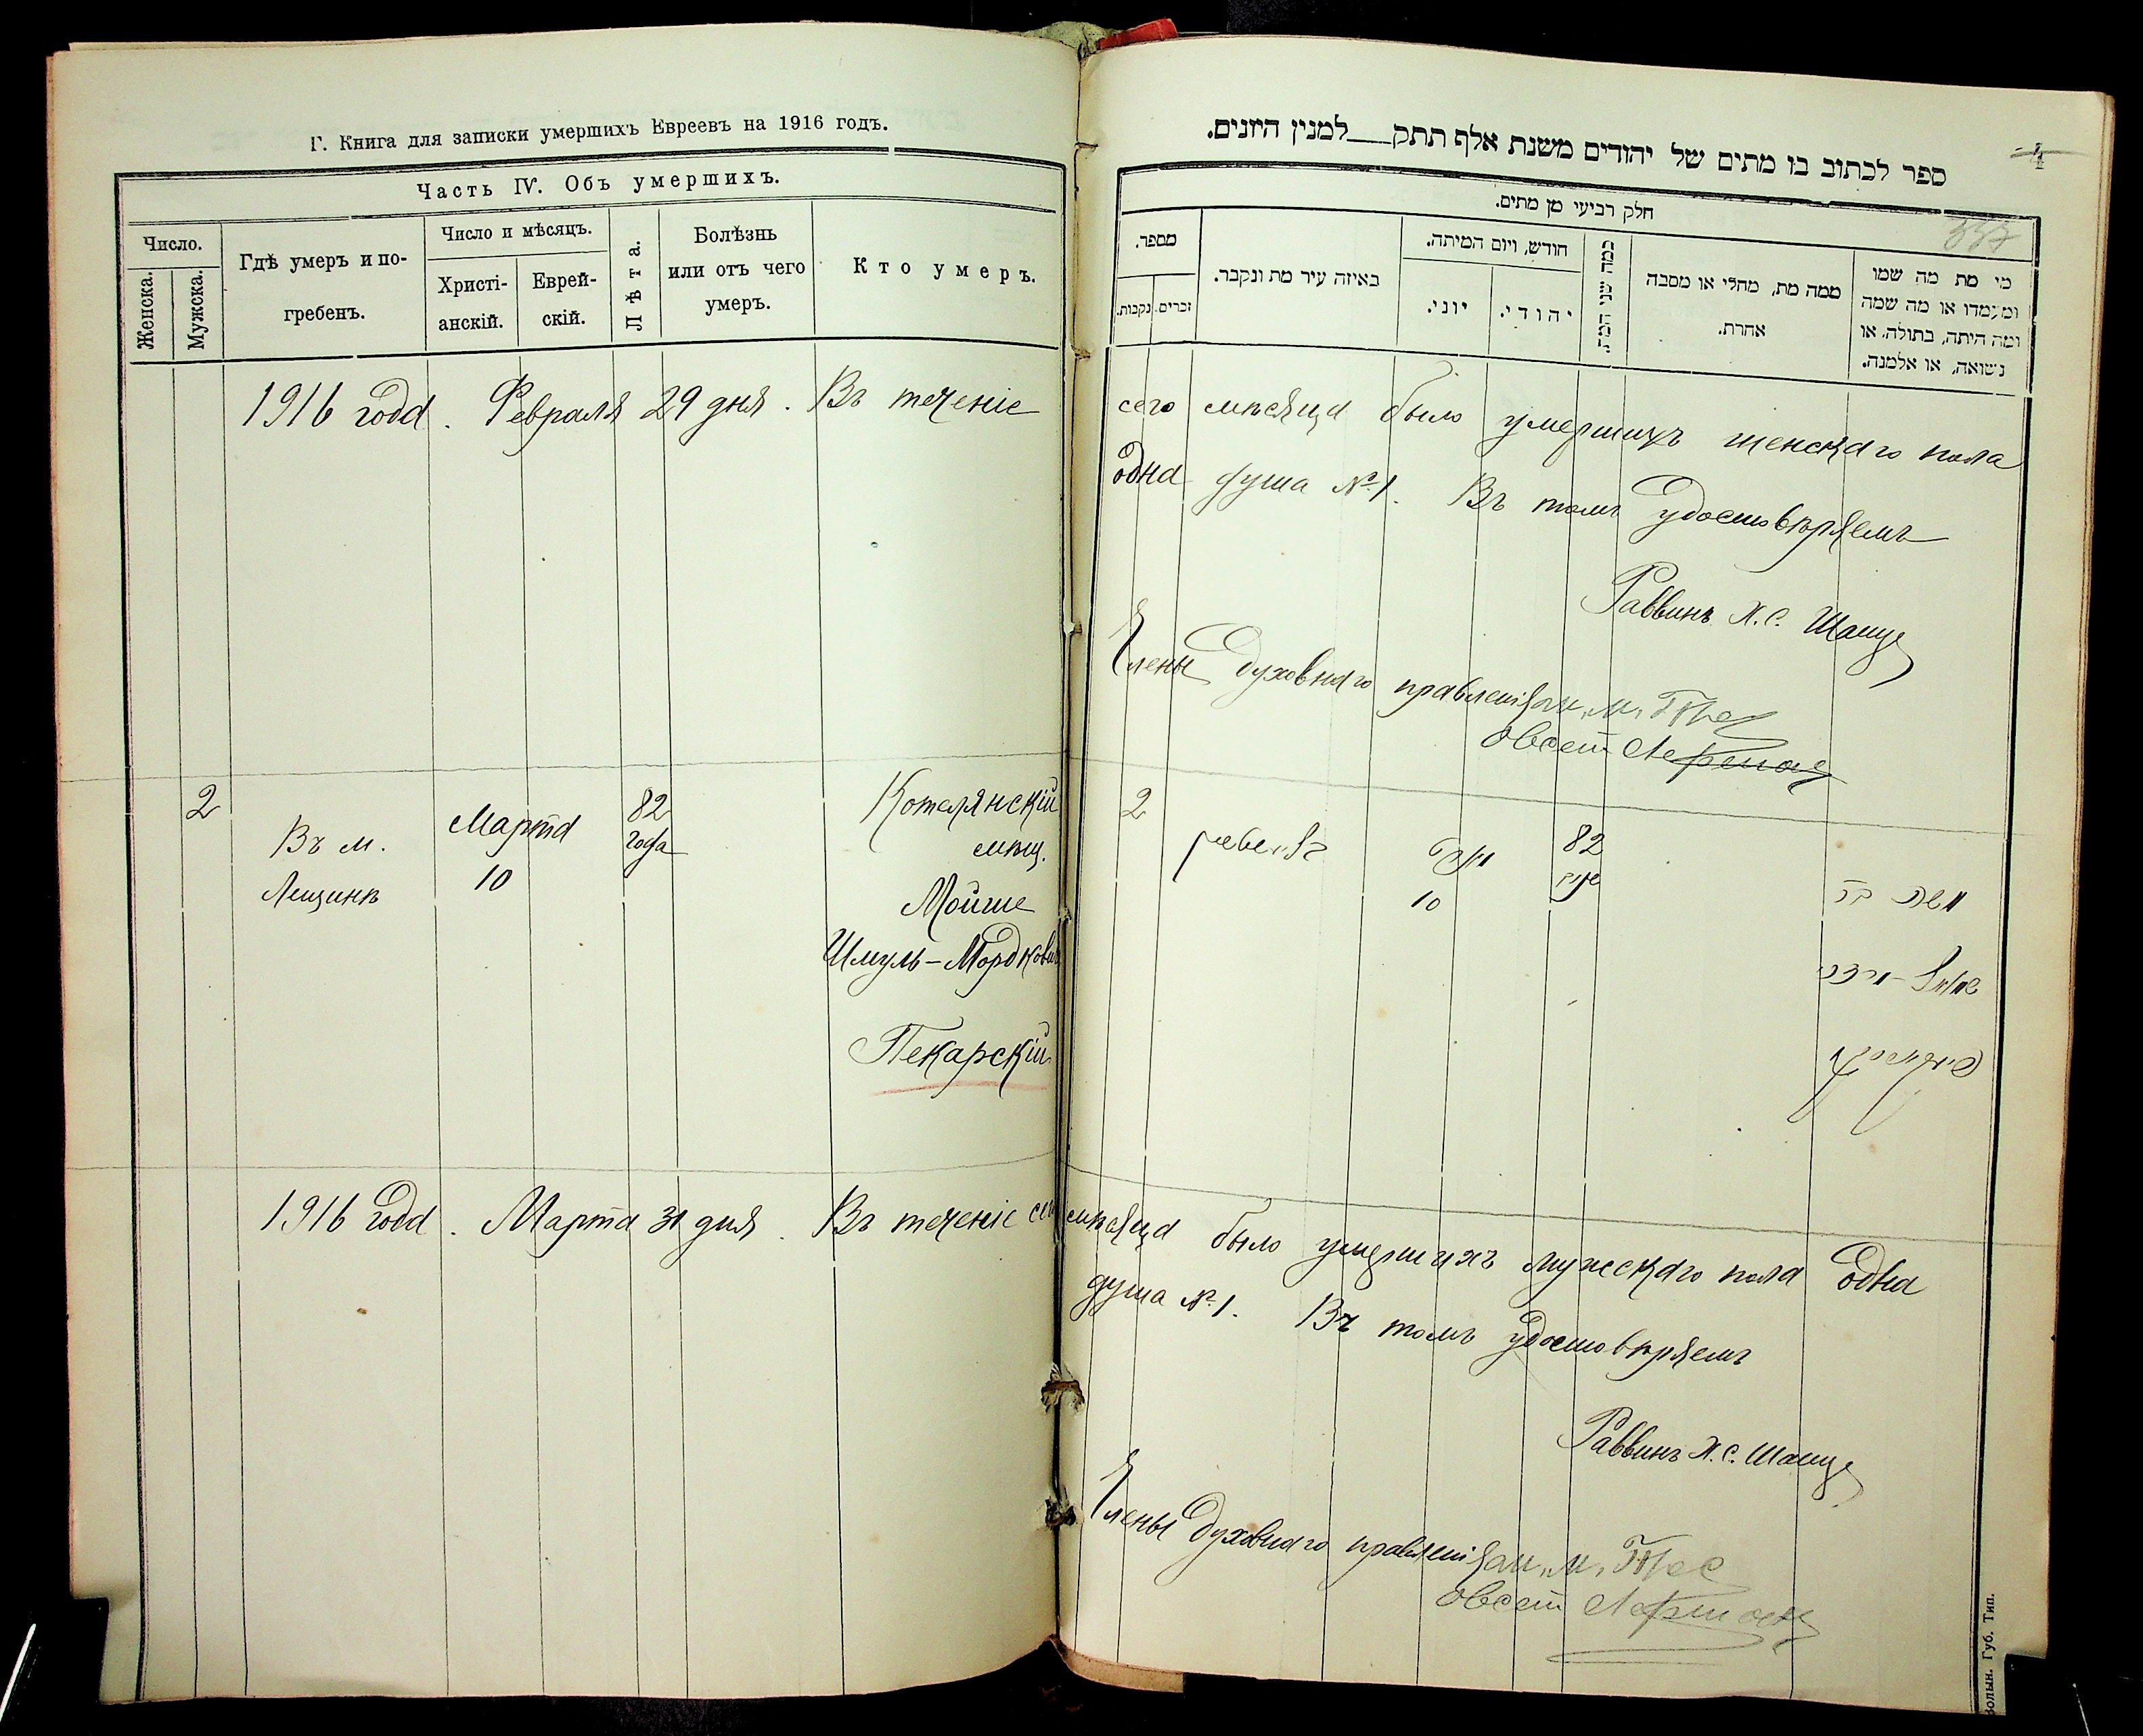 Г. Книга для записки умершихъ Евреевъ на 1916 годъ.
Часть IV. Объ умершихъ.
Число.
Женска.
Мужска.
Гдѣ умеръ и по-
гребенъ.
Число и мѣсяцъ.
Христі-
анскій.
Еврей-
скій.
Лѣта.
Болѣзнь
или отъ чего
умеръ.
Кто умеръ.
1916 года. Февраля 29 дня. Въ теченіе
2
Въ м.
Лещинѣ
Марта
10
82
года
Котелянскій
мѣщ.
Мойше
Шмуль-Мордкович
Пекарскій
1916 года. Марта 31 дня. Въ теченіе сего
ספר לכתוב בו מתים של יהודים משנת אלף תתק___למנין היונים.
4
557
חלק רביעי מן מתים.
מספר.
נקבות.
זכרים.
באיזה עיר מת ונקבר.
חודש, ויום המיתה.
יוני.
יהודי.
כמה שני המת.
ממה מת, מחלי או מסבה
אחרת.
מי מת מה שמו
ומעמדו או מה שמה
ומה היתה, בתולה, או
נשואה, או אלמנה.
сего мѣсяца было умершихъ женскаго пола
одна душа №1. Въ томъ удостовѣряемъ
Раввинъ Х.С.
Члены Духовнаго правленія
Овсей
2
מרץ
10
82
שנים
משה
שמואל-מרדכי
פיקארסקי
мѣсяца было умершихъ мужскаго пола одна
душа №1. Въ томъ удостовѣряемъ
Раввинъ Х.С.
Члены Духовнаго правленія
Овсей
Волын. Губ. Тип.